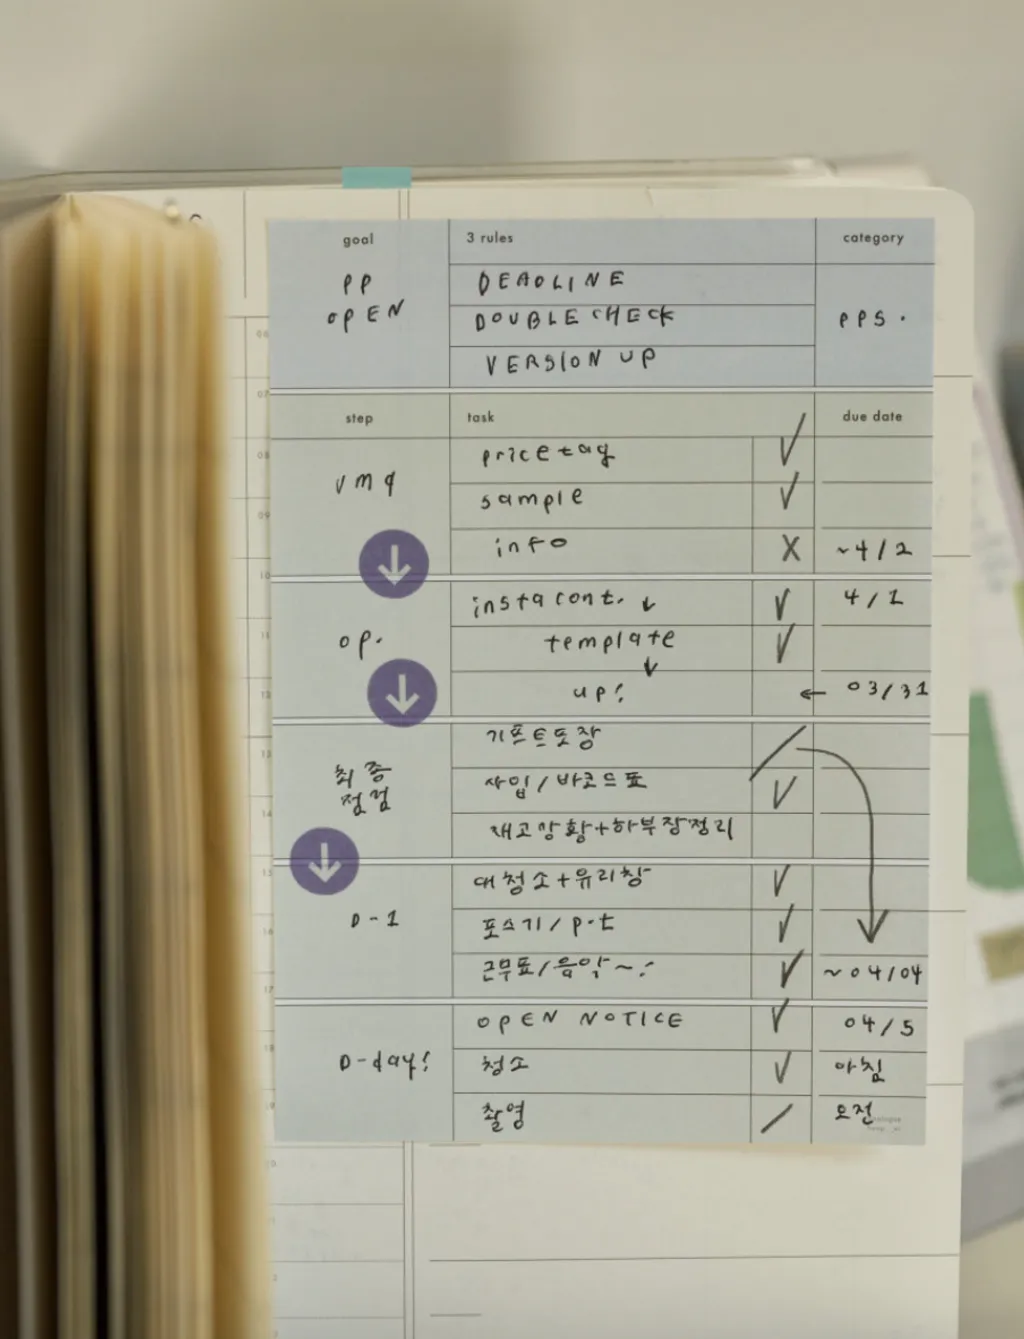 goal
3 rules
category
PP
OPEN
DEADLINE
DOUBLE CHECK
VERSION UP
PPS.
step
task
due date
vmd
price tag
✓
sample
✓
info
X
~4/2
op.
insta cont. ↓
✓
4/1
template
↓
✓
up!
← 03/31
최종
점검
기프트도장
사입/바코드표
✓
재고상황+하부장정리
D-1
대청소+유리창
✓
포스기/p.t
✓
근무표/음악~!
✓
~04/04
D-day!
OPEN NOTICE
✓
04/5
청소
✓
아침
촬영
/
오전
06
07
08
09
10
11
12
13
14
15
16
17
18
19